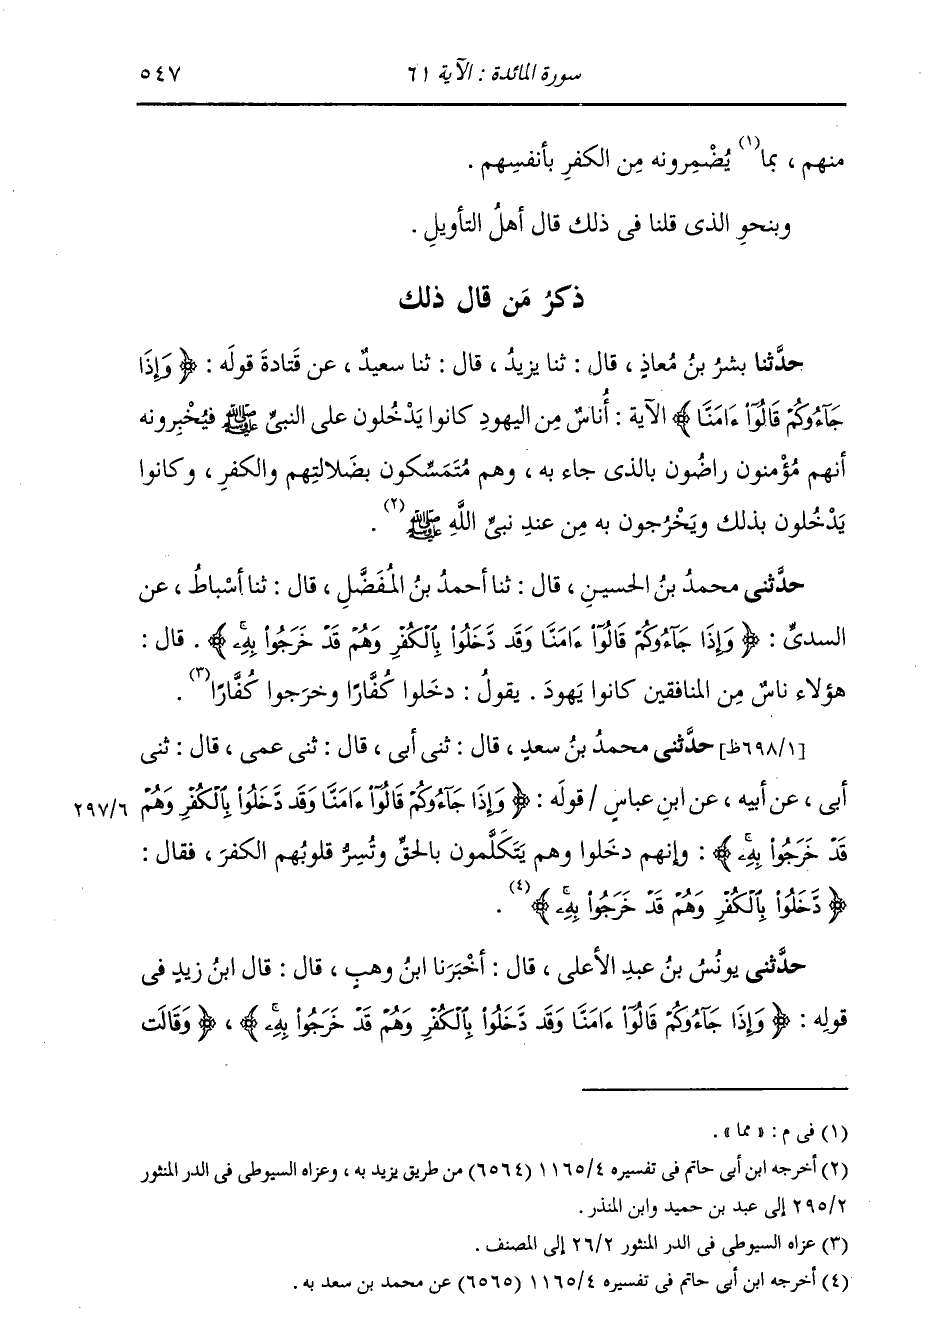 سورة المائدة : الآية ٦١
٥٤٧
منهم ، بما(١) يُضْمِرونه مِن الكفرِ بأنفسِهم .
وبنحوِ الذى قلنا فى ذلك قال أهلُ التأويلِ .
ذكرُ مَن قال ذلك
حدَّثنا بشرُ بنُ مُعاذٍ ، قال : ثنا يزيدُ ، قال : ثنا سعيدٌ ، عن قَتادةَ قولَه : ﴿ وَإِذَا
جَآءُوكُمْ قَالُوٓا۟ ءَامَنَّا ﴾ الآية : أُناسٌ مِن اليهودِ كانوا يَدْخُلون على النبىِّ ﷺ فيُخْبِرونه
أنهم مُؤْمنون راضُون بالذى جاء به ، وهم مُتَمَسِّكون بضَلالتِهم والكفرِ ، وكانوا
يَدْخُلون بذلك ويَخْرُجون به مِن عندِ نبىِّ اللَّهِ ﷺ(٢) .
حدَّثنى محمدُ بنُ الحسينِ ، قال : ثنا أحمدُ بنُ المُفَضَّلِ ، قال : ثنا أسْباطُ ، عن
السدىِّ : ﴿ وَإِذَا جَآءُوكُمْ قَالُوٓا۟ ءَامَنَّا وَقَد دَّخَلُوا۟ بِٱلْكُفْرِ وَهُمْ قَدْ خَرَجُوا۟ بِهِۦۚ ﴾ . قال :
هؤلاء ناسٌ مِن المنافقين كانوا يَهودَ . يقولُ : دخَلوا كُفَّارًا وخرَجوا كُفَّارًا(٣) .
[٦٩٨/١ظ] حدَّثنى محمدُ بنُ سعدٍ ، قال : ثنى أبى ، قال : ثنى عمى ، قال : ثنى
أبى ، عن أبيه ، عن ابنِ عباسٍ / قولَه : ﴿ وَإِذَا جَآءُوكُمْ قَالُوٓا۟ ءَامَنَّا وَقَد دَّخَلُوا۟ بِٱلْكُفْرِ وَهُمْ ٢٩٧/٦
قَدْ خَرَجُوا۟ بِهِۦۚ ﴾ : وإنهم دخَلوا وهم يَتَكَلَّمون بالحقِّ وتُسِرُّ قلوبُهم الكفرَ ، فقال :
﴿ دَّخَلُوا۟ بِٱلْكُفْرِ وَهُمْ قَدْ خَرَجُوا۟ بِهِۦۚ ﴾(٤) .
حدَّثنى يونُسُ بنُ عبدِ الأعلى ، قال : أخْبَرَنا ابنُ وهبٍ ، قال : قال ابنُ زيدٍ فى
قولِه : ﴿ وَإِذَا جَآءُوكُمْ قَالُوٓا۟ ءَامَنَّا وَقَد دَّخَلُوا۟ بِٱلْكُفْرِ وَهُمْ قَدْ خَرَجُوا۟ بِهِۦۚ ﴾ ، ﴿ وَقَالَت
(١) فى م : « مما » .
(٢) أخرجه ابن أبى حاتم فى تفسيره ١١٦٥/٤ (٦٥٦٤) من طريق يزيد به ، وعزاه السيوطى فى الدر المنثور
٢٩٥/٢ إلى عبد بن حميد وابن المنذر .
(٣) عزاه السيوطى فى الدر المنثور ٢٦/٢ إلى المصنف .
(٤) أخرجه ابن أبى حاتم فى تفسيره ١١٦٥/٤ (٦٥٦٥) عن محمد بن سعد به .